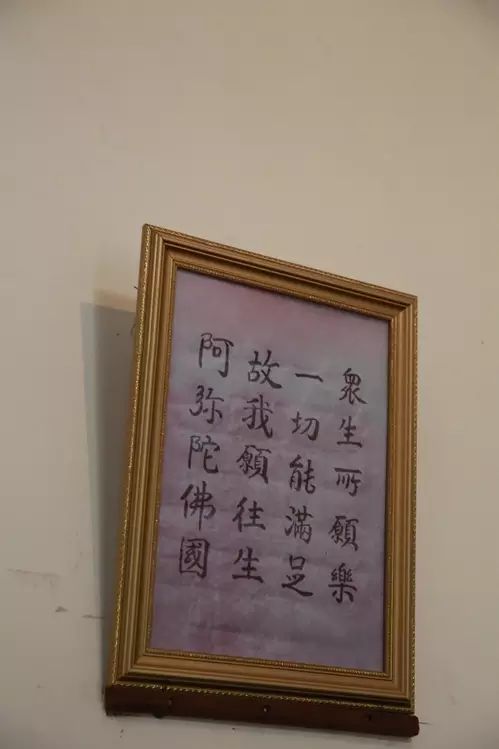 衆生所願樂
一切能滿足
故我願往生
阿弥陀佛國